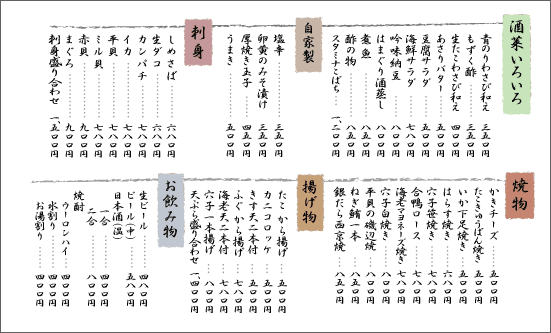 酒菜いろいろ
青のりわさび和え 三五〇円
もずく酢 三五〇円
生たこわさび和え 四〇〇円
あさりバター 五五〇円
豆腐サラダ 五〇〇円
海鮮サラダ 七八〇円
吟味納豆 七八〇円
はまぐり酒蒸し 八〇〇円
煮魚 八五〇円
酢の物 八五〇円
スタミナこばち 一、二〇〇円
自家製
塩辛 三五〇円
卵黄のみそ漬け 三五〇円
厚焼き玉子 五〇〇円
うまき 五〇〇円
刺身
しめさば 六八〇円
生ダコ 六八〇円
カンパチ 七八〇円
イカ 七八〇円
平貝 七八〇円
ミル貝 七八〇円
赤貝 九〇〇円
まぐろ 九〇〇円
刺身盛り合わせ 一、五〇〇円
焼物
かきチーズ 五〇〇円
たこきゅうばん焼き 五〇〇円
いか下足焼き 五〇〇円
はらす焼き 六八〇円
穴子笹焼き 七八〇円
合鴨ロース 七八〇円
海老マヨネーズ焼き 七八〇円
穴子白焼き 八〇〇円
平貝の磯辺焼 八〇〇円
ねぎ鮪一本 八五〇円
銀だら西京焼 八〇〇円
揚げ物
たこから揚げ 五〇〇円
カニコロッケ 五五〇円
きす天二本付 五八〇円
ふぐから揚げ 七八〇円
海老天二本付 七八〇円
穴子一本揚げ 八〇〇円
天ぷら盛り合わせ 一、四〇〇円
お飲み物
生ビール 四八〇円
ビール(中) 五八〇円
日本酒(温)
一合 四〇〇円
二合 八〇〇円
焼酎
ウーロンハイ 四〇〇円
水割り 四〇〇円
お湯割り 四〇〇円